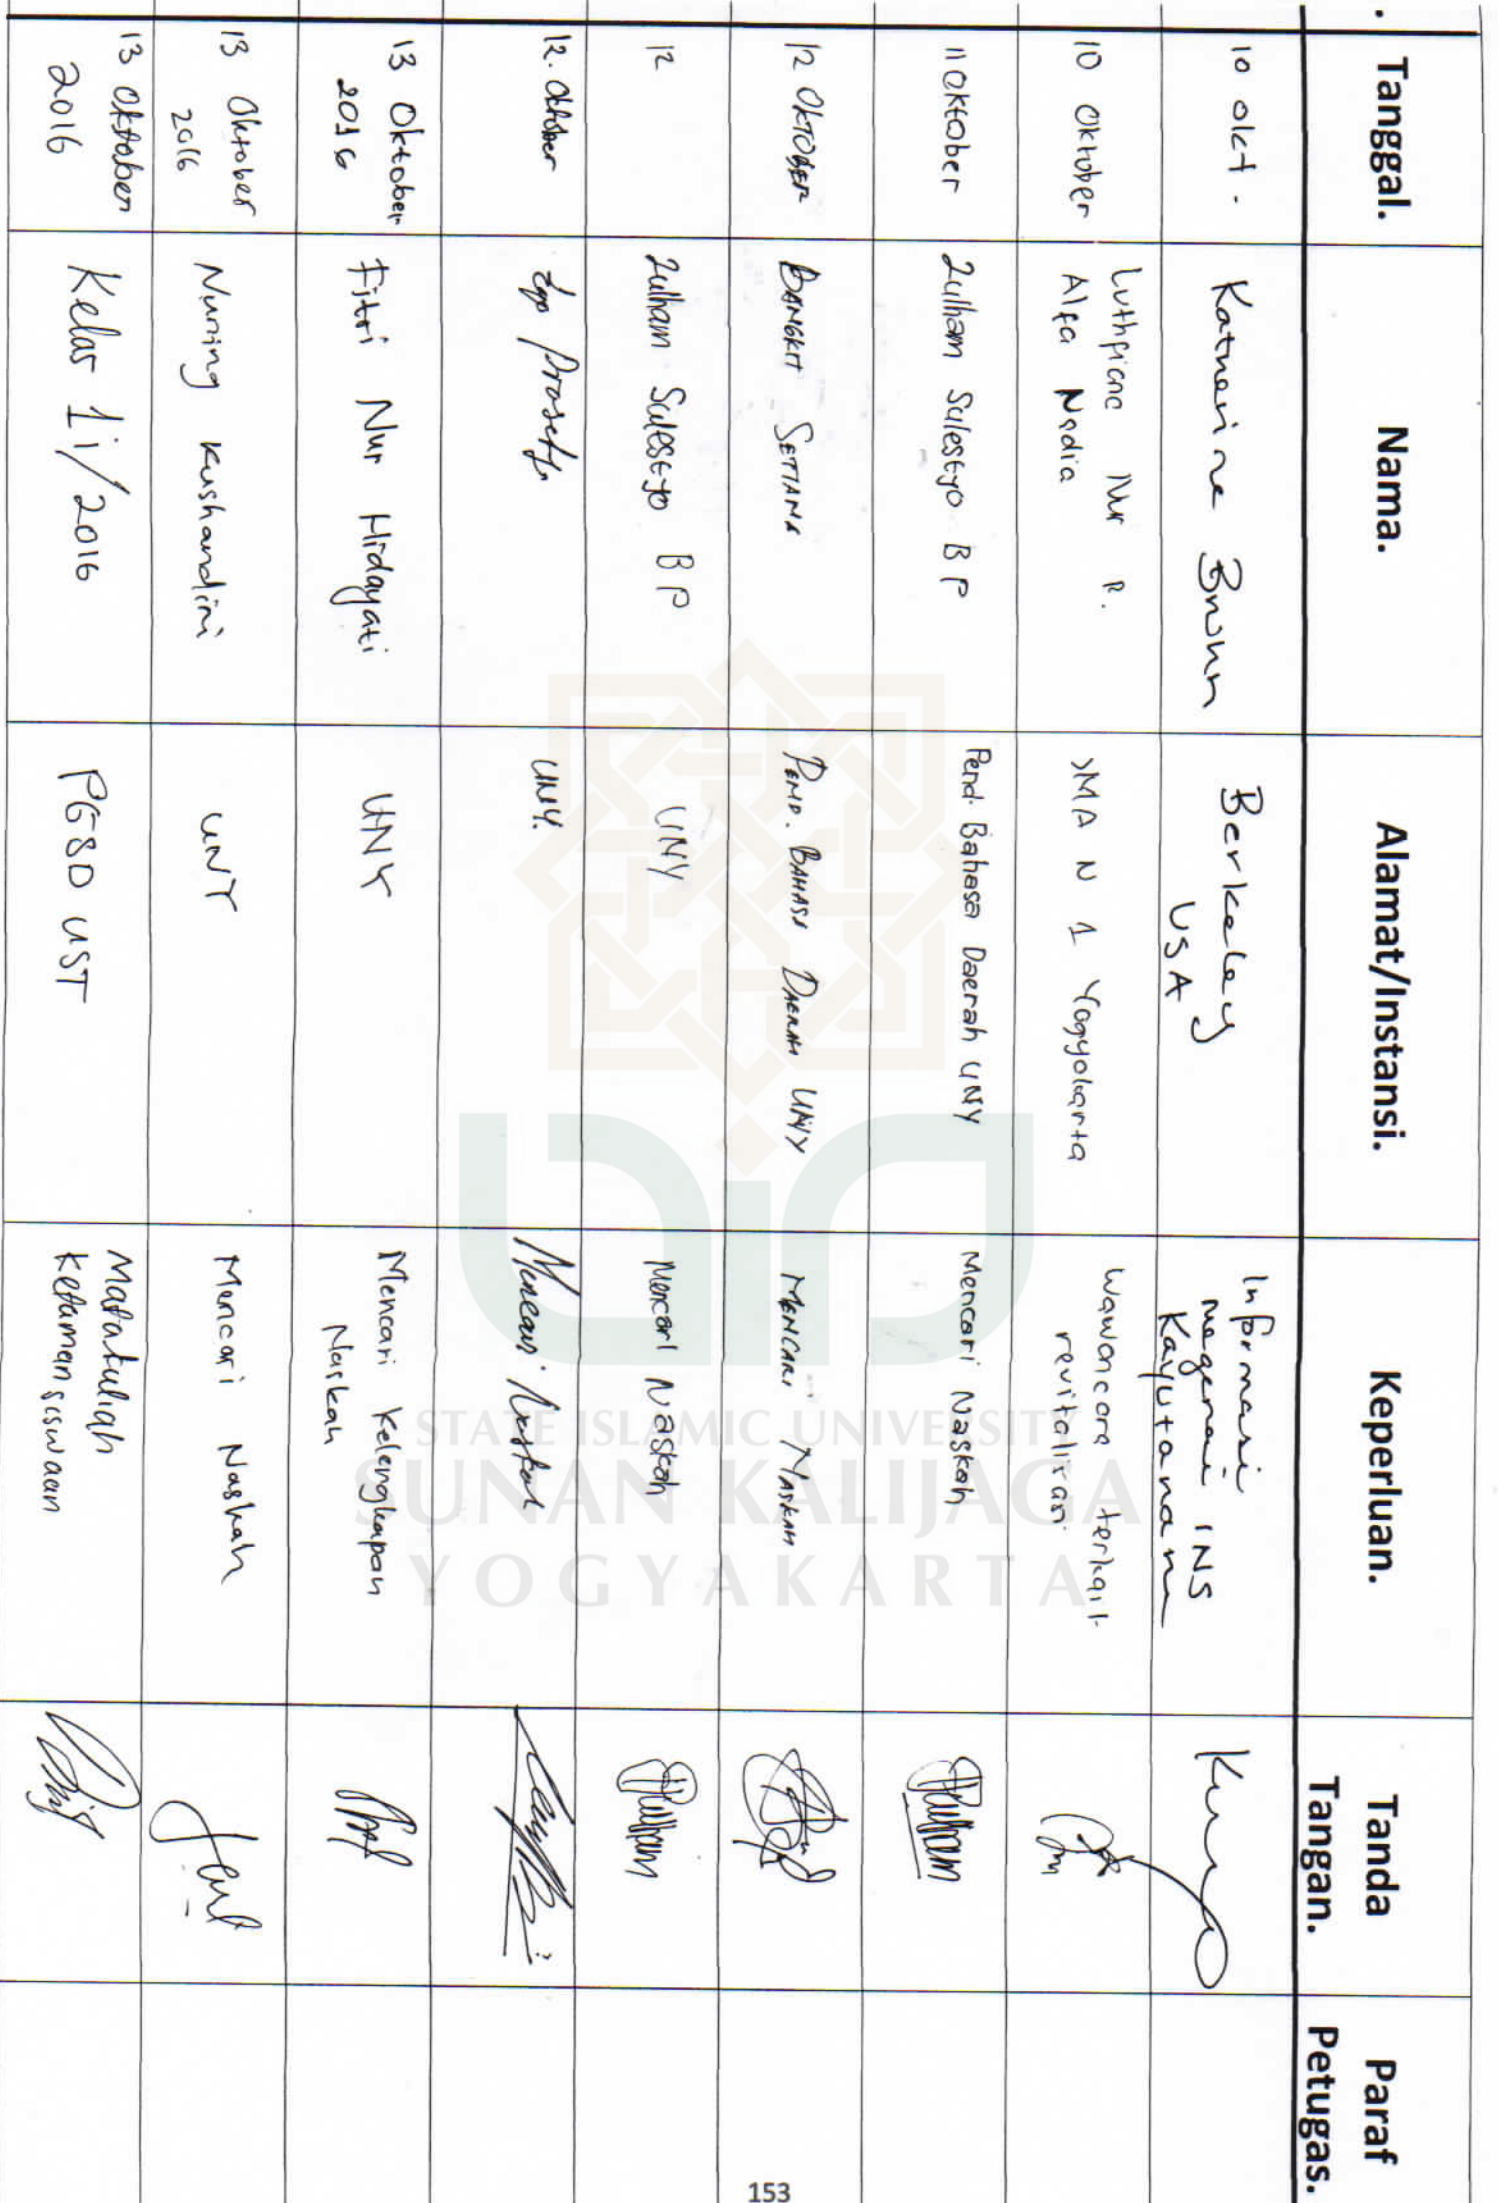 . Tanggal. Nama. Alamat/Instansi. Keperluan. Tanda Tangan. Paraf Petugas.
10 okt. Katherine Brown Berkeley USA Informasi megenai INS Kayutanam
10 Oktober Luthfiana Nur R. Alfa Nadia SMA N 1 Yogyakarta Wawancara terkait revitalisasi
11 Oktober Zulham Sulestyo BP Pend. Bahasa Daerah UNY Mencari Naskah
12 OKTOBER BANGKIT SETIANA PEND. BAHASA DAERAH UNY MENCARI NASKAH
12 Zulham Sulestyo BP UNY Mencari Naskah
12. Oktober Prasetyo UNY. Mencari Naskah
13 Oktober 2016 Fitri Nur Hidayati UNY Mencari Kelengkapan Naskah
13 Oktober 2016 Nuning Kushandini UNY Mencari Naskah
13 Oktober 2016 Kelas 1i/2016 PGSD UST Matakuliah Ketamansiswaan
STATE ISLAMIC UNIVERSITY
SUNAN KALIJAGA
YOGYAKARTA
153